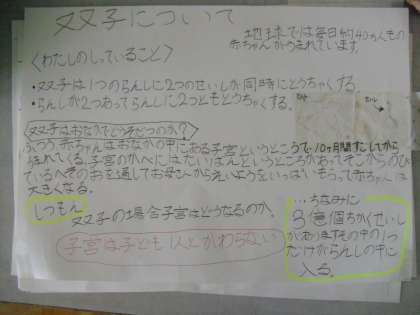 双子について
地球では毎日約40万人もの
赤ちゃんがうまれています。
〈わたしのしっていること〉
・双子は1つのらんしに2つのせいしが同時にとうちゃくする
・らんしが2つあってらんしに2つともとうちゃくする。
双子はおなかでどうそだつのか?
ふつう赤ちゃんはおなかの中にある子宮というところで、10ヶ月間すごしてから
うまれてくる。子宮のかべにはたいばんというところがあってそこからのび
ているへそのおを通してお母さんからえいようをいっぱいもらって赤ちゃんは
大きくなる。
しつもん
双子の場合子宮はどうなるのか。
子宮は子ども1人とかわらない
…ちなみに
3億個ちかくせいし
がありますその中の1つ
だけがらんしの中に
入る。